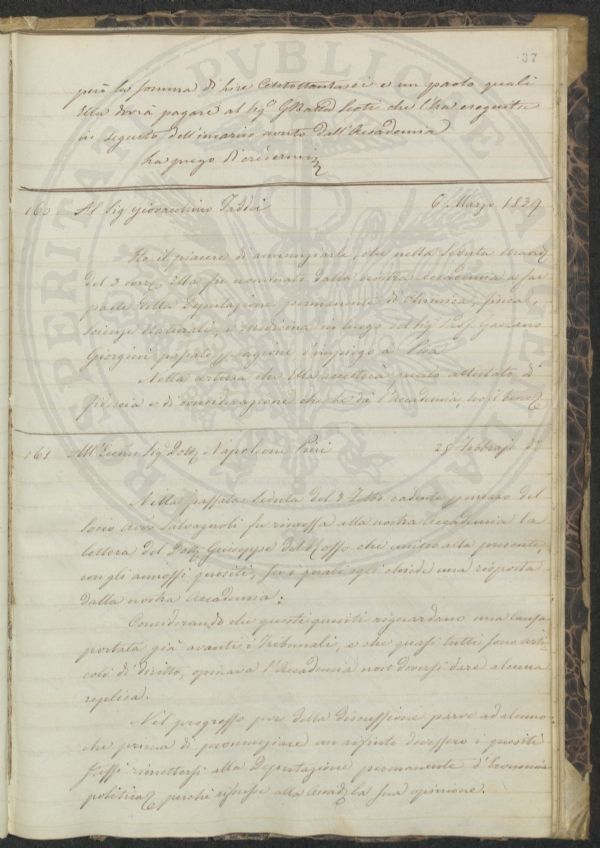 37
però la somma di Lire Centottantasei e un paolo quali
Ella dovrà pagare al Sig.r G Batta Conti che l'ha eseguito
in seguito dell'incarico avuto dall'Accademia
ha prego di credermi
160 Al Sig. Giovacchino Taddei 6 Marzo 1839
Ho il piacere di annunziarle, che nella Seduta straord.
del 3 corr.e Ella fu nominato dalla nostra Accademia a far
parte della Deputazione permanente di Chimica, fisica,
scienze Naturali, e Medicina in luogo del Sig. Prof. Gaetano
Giorgini passato p. cagione d'impiego a Pisa
Nella certezza che Ella accetterà questo attestato di
fiducia e di considerazione che Le dà l'Accademia,
161 All'Eccmo Sig.r Dott. Napoleone Pini 28 Febbrajo
Nella passata Seduta del 3 Febb.o cadente p. mezzo del
Socio Avv. Salvagnoli fu rimessa alla nostra Accademia la
lettera del Dott. Giuseppe del Rosso che unisco alla presente,
con gli annessi quesiti, su i quali egli chiede una risposta
dalla nostra Accademia:
Considerando che questi quesiti riguardano una Causa
portata già avanti i Tribunali, e che quasi tutti sono arti-
coli di diritto, opinava l'Accademia non doversi dare alcuna
replica.
Nel progresso poi della discussione parve ad alcuno
che prima di pronunziare un rifiuto dovessero i quesiti
stessi rimettersi alla Deputazione permanente d'Economia
politica, perchè rifusse alla Accad.a la sua opinione.